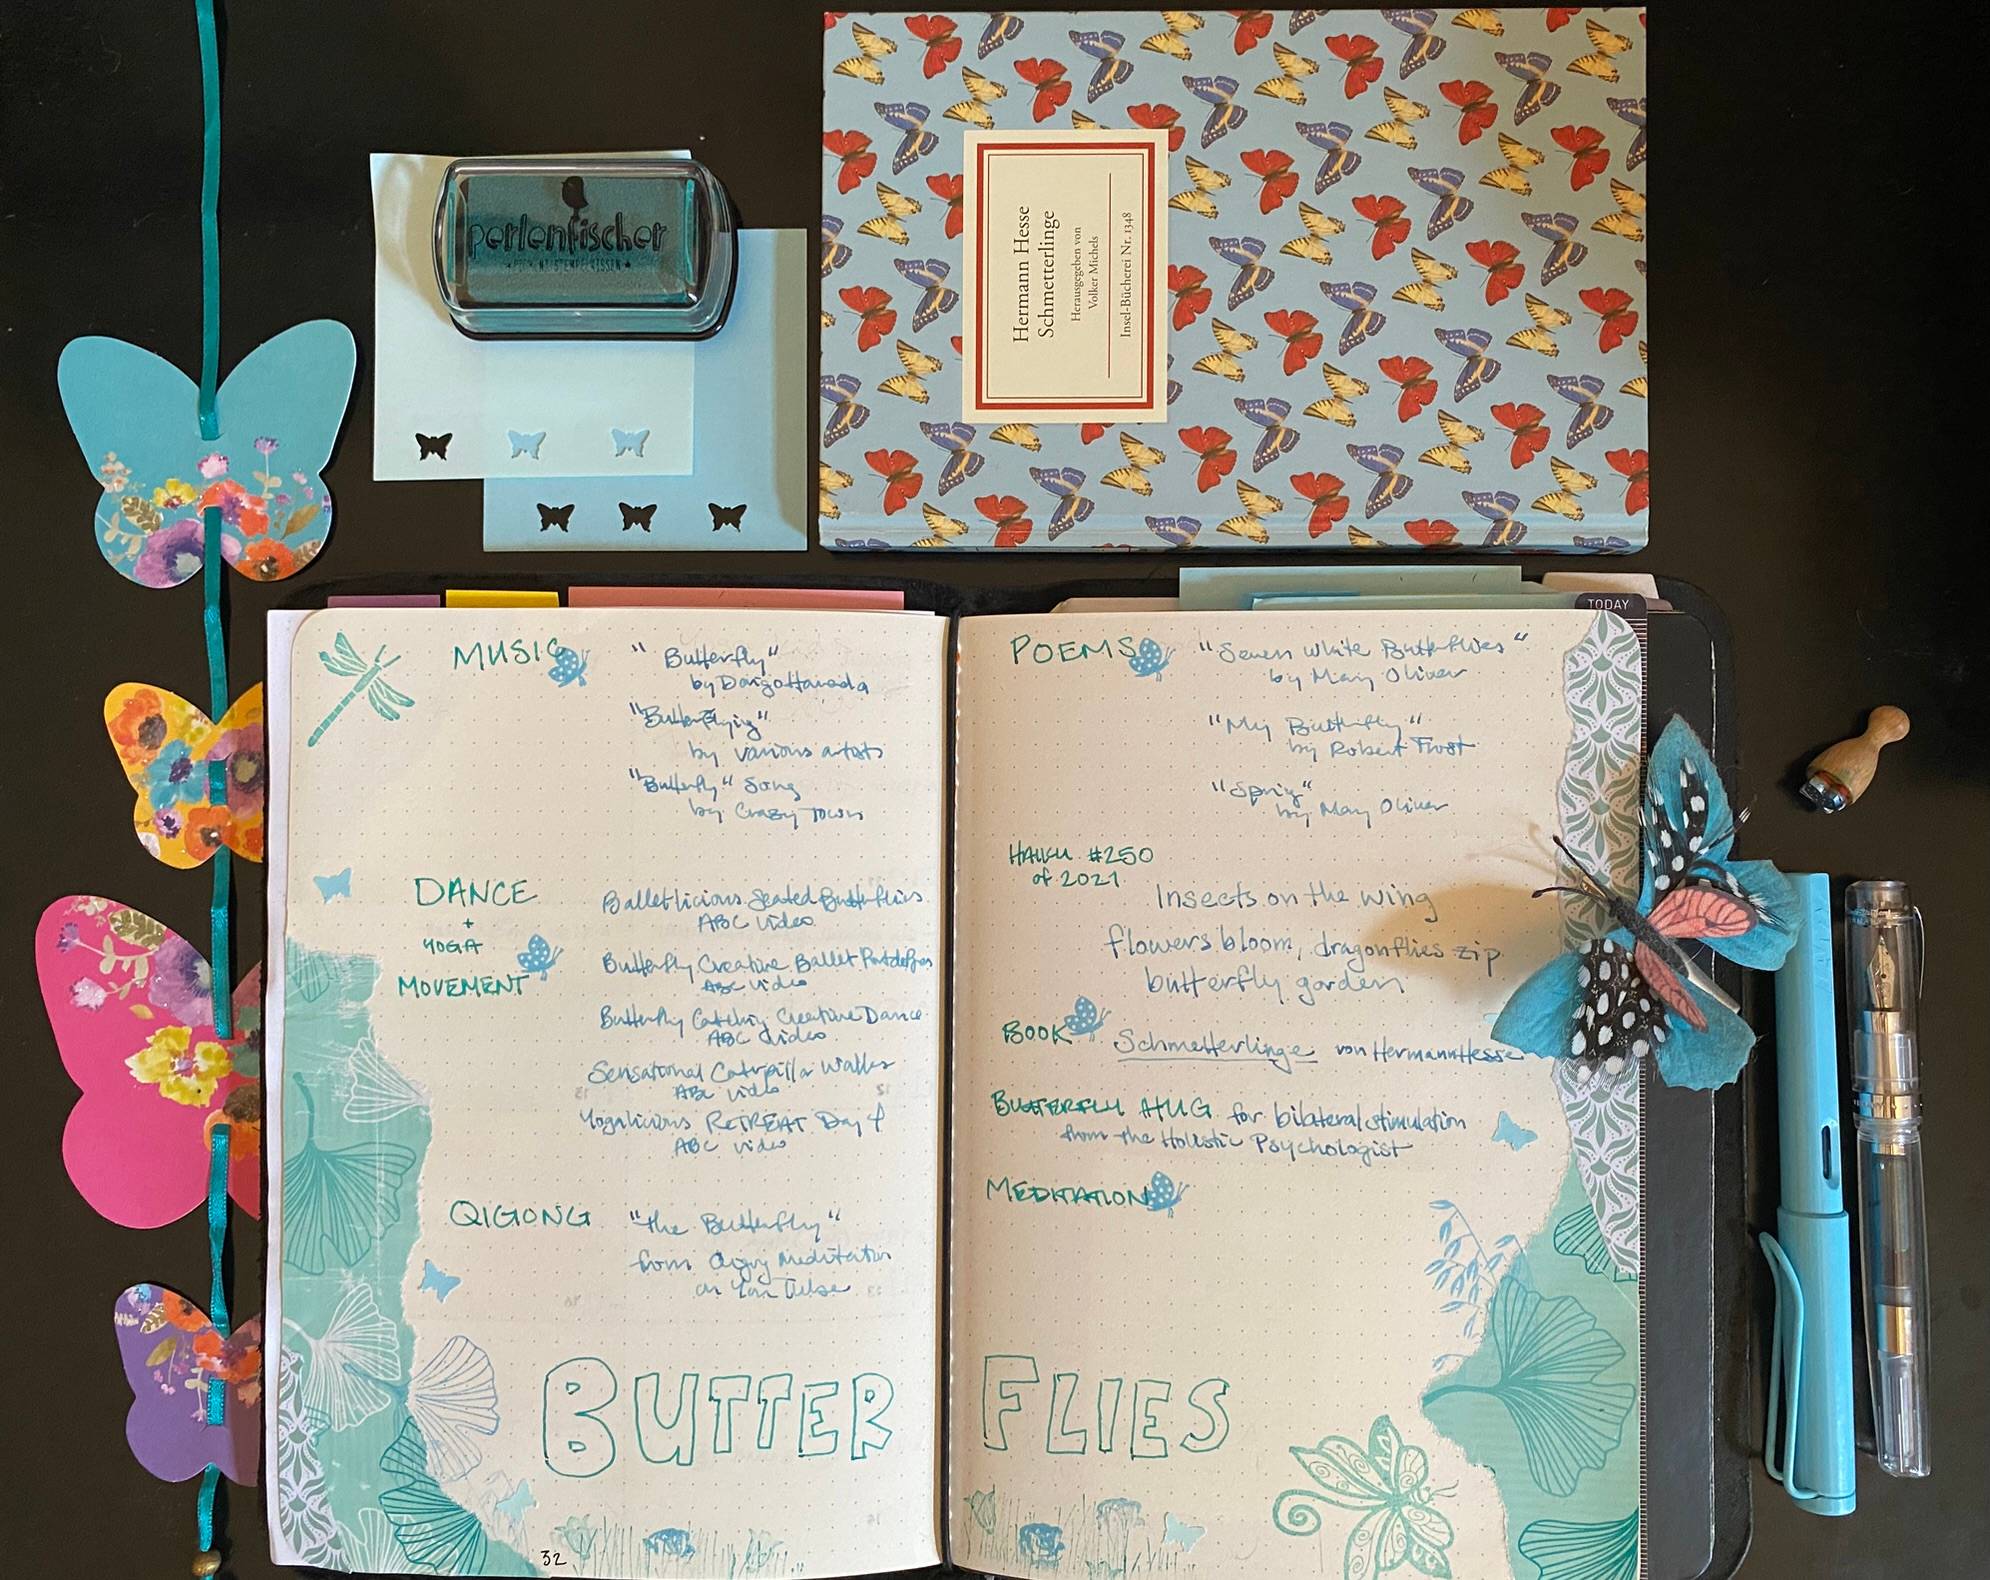 perlenfischer
Hermann Hesse
Schmetterlinge
Herausgegeben von
Volker Michels
Insel-Bücherei Nr. 1348
TODAY
MUSIC
"Butterfly"
by Daigo Hanada
"Butterflying"
by various artists
"Butterfly" Song
by Crazy Town
DANCE
+
YOGA
MOVEMENT
Balletlicious Seated Butterflies
ABC video
Butterfly Creative Ballet Port de Bras
ABC video
Butterfly Catching Creative Dance
ABC video
Sensational Caterpillar Walks
ABC video
Yogalicious RETREAT Day 4
ABC video
QIGONG
"the Butterfly"
from Qigong Meditation
on YouTube
BUTTER
32
POEMS
"Seven White Butterflies"
by Mary Oliver
"My Butterfly"
by Robert Frost
"Spring"
by Mary Oliver
HAIKU #250
of 2021
Insects on the wing
flowers bloom, dragonflies zip
butterfly garden
BOOK
Schmetterlinge von Hermann Hesse
BUTTERFLY HUG for bilateral stimulation
from the Holistic Psychologist
MEDITATION
FLIES